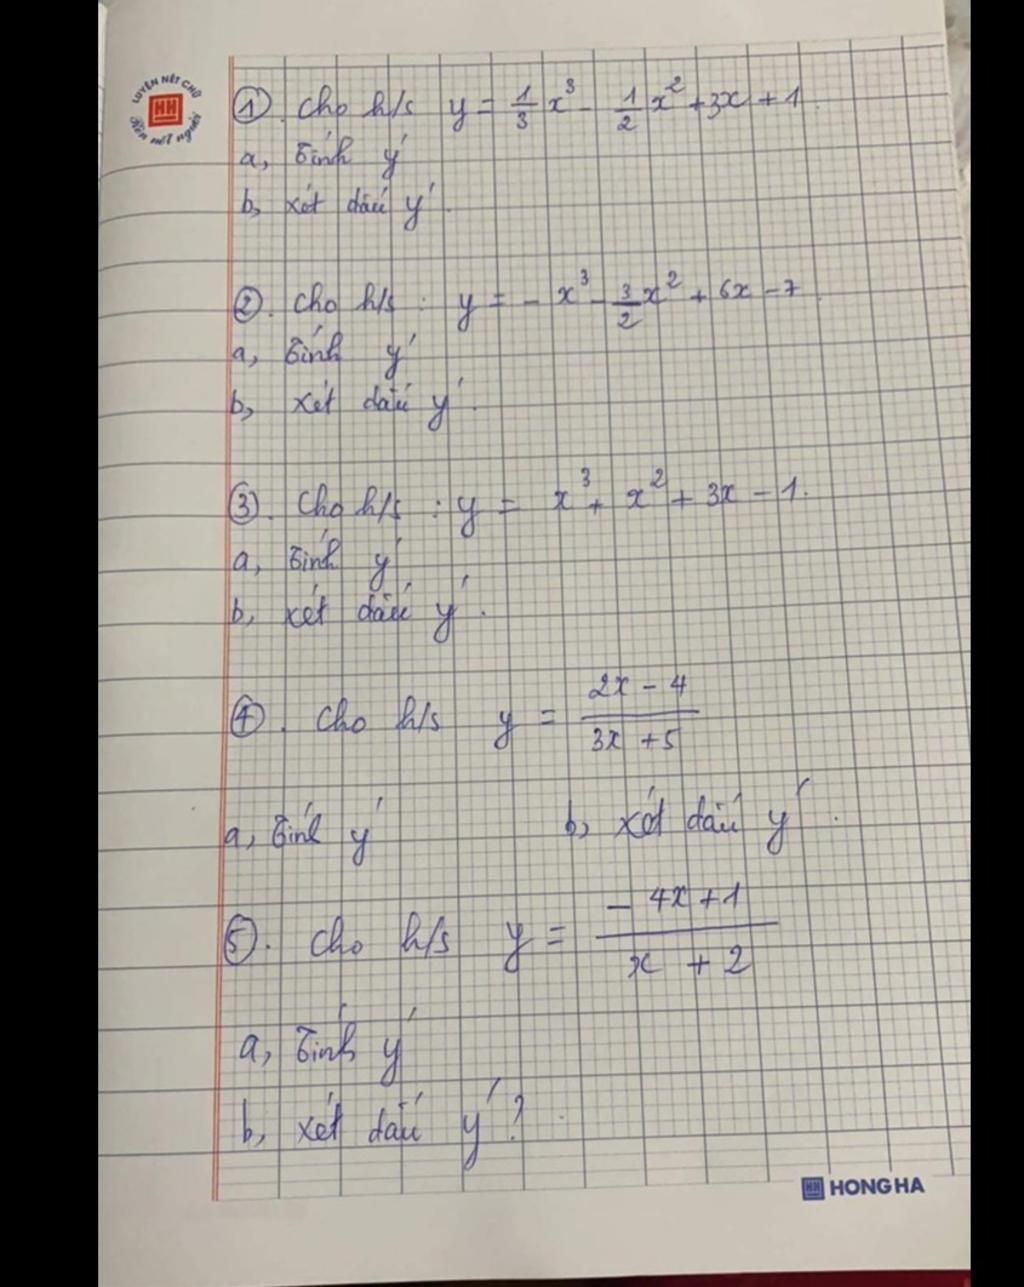 LUYỆN NÉT CHỮ
HH
Rèn nết người
① Cho h/s y = 1/3 x³ - 1/2 x² + 3x + 1.
a, Tính y'
b, xét dấu y'.
②. Cho h/s : y = - x³ - 3/2 x² + 6x - 7
a, Tính y'
b, xét dấu y'.
③. Cho h/s : y = x³ + x² + 3x - 1.
a, Tính y'
b, xét dấu y'.
④. Cho h/s y = (2x - 4)/(3x + 5)
a, Tính y' b, xét dấu y'.
⑤. Cho h/s y = (- 4x + 1)/(x + 2)
a, Tính y'
b, xét dấu y' ?
HH HONG HA